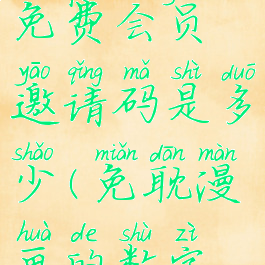 免费会员
yāo qǐng mǎ shì duō
邀请码是多
shǎo miǎn dān màn
少(免耽漫
huà de shù zì
画的数字